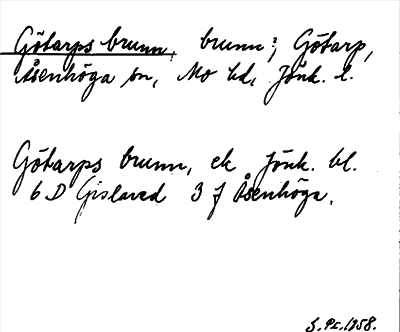 Götarps brunn, brunn; Götarp,
Åsenhöga sn, Mo hd, Jönk. l.
Götarps brunn, ek Jönk. bl.
6 D Gislaved 3 f Åsenhöga.
1958.